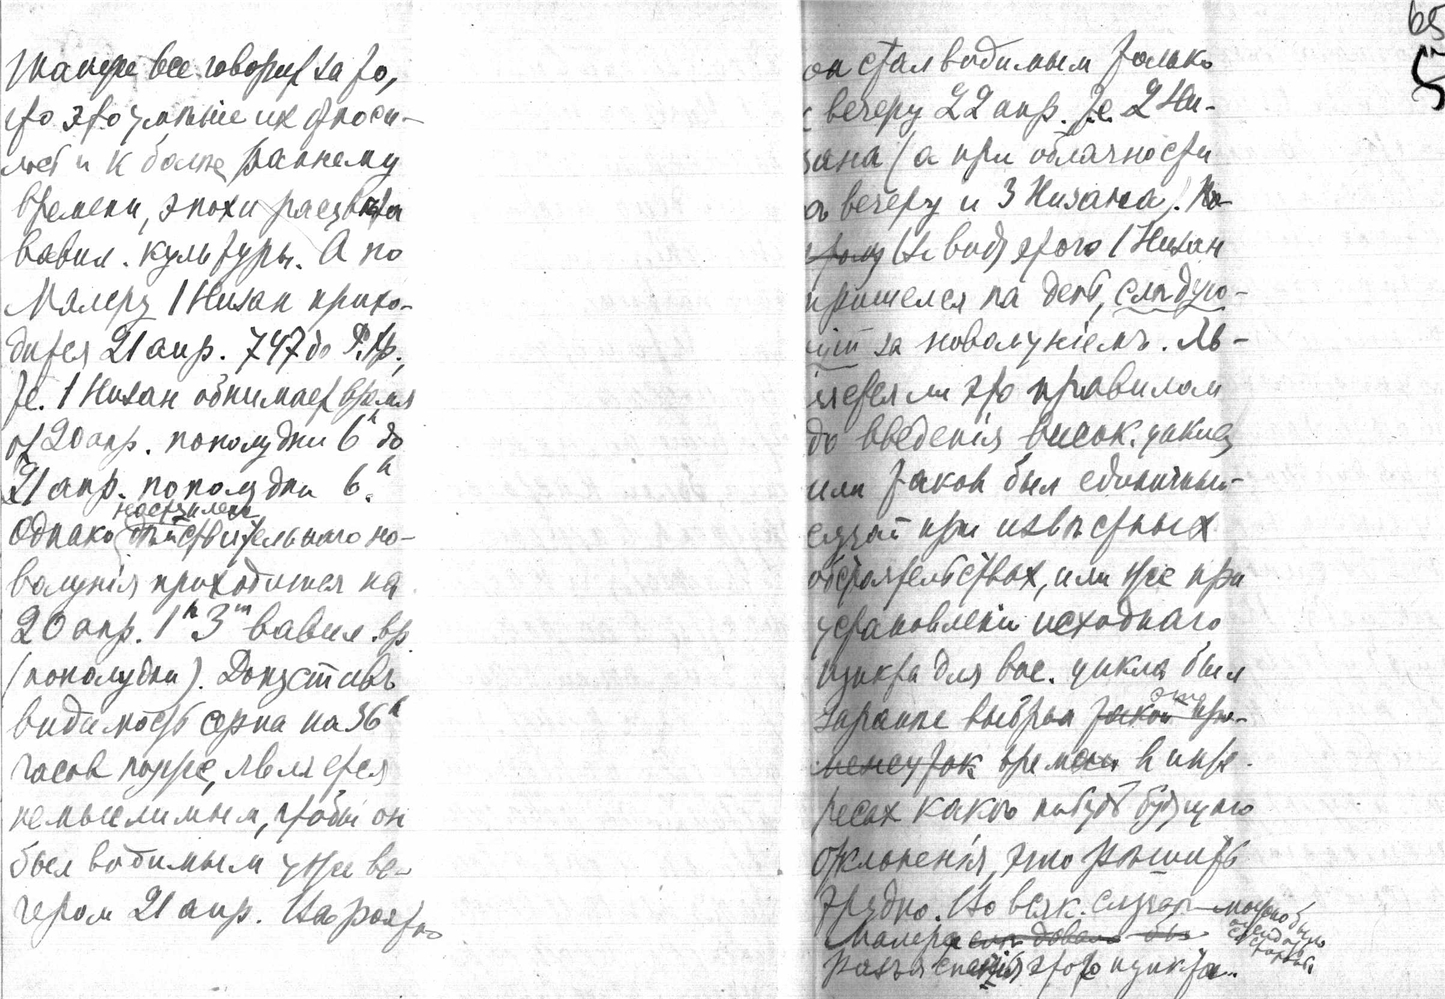 Малера все говорит за то,
что это уменіе их относи-
лось и к болѣе раннему
времени, эпохи расцвѣта
вавил. культуры. А по
Малеру 1 Низан прихо-
дится 21 апр. 747 до Р.Хр.,
те. 1 Низан обнимает время
от 20 апр. пополудни 6ʰ до
21 апр. пополудни 6.ʰ
наступленіе
Однако дѣйствительнаго но-
волунія приходится на
20 апр. 1ʰ 3ᵐ вавил. вр.
(пополудни). Допустивъ
видимость серпа на 36ʰ
часов позже, является
немыслимым, чтобы он
был видимым уже ве-
чером 21 апр. Вѣроятно
65
он стал видимым только
к вечеру 22 апр. те. 2 Ни-
зана (а при облачности
вечеру и 3 Низана). По-
этому в виду этого 1 Низан
пришелся на день, слѣдую-
щій за новолуніемъ. Яв-
ляется ли это правилом
до введенія висок. цикла,
или таков был единичный
случай при извѣстных
обстоятельствах, или же при
установленіи исходнаго
пункта для вис. цикла был
это
заранѣе выбран такой про-
межуток времени в инте-
ресах какого нибудь будущаго
отклоненія, это рѣшить
трудно. Во всяк. случаѣ можно было
Малера слѣдовало бы
разъясненія этого пункта.